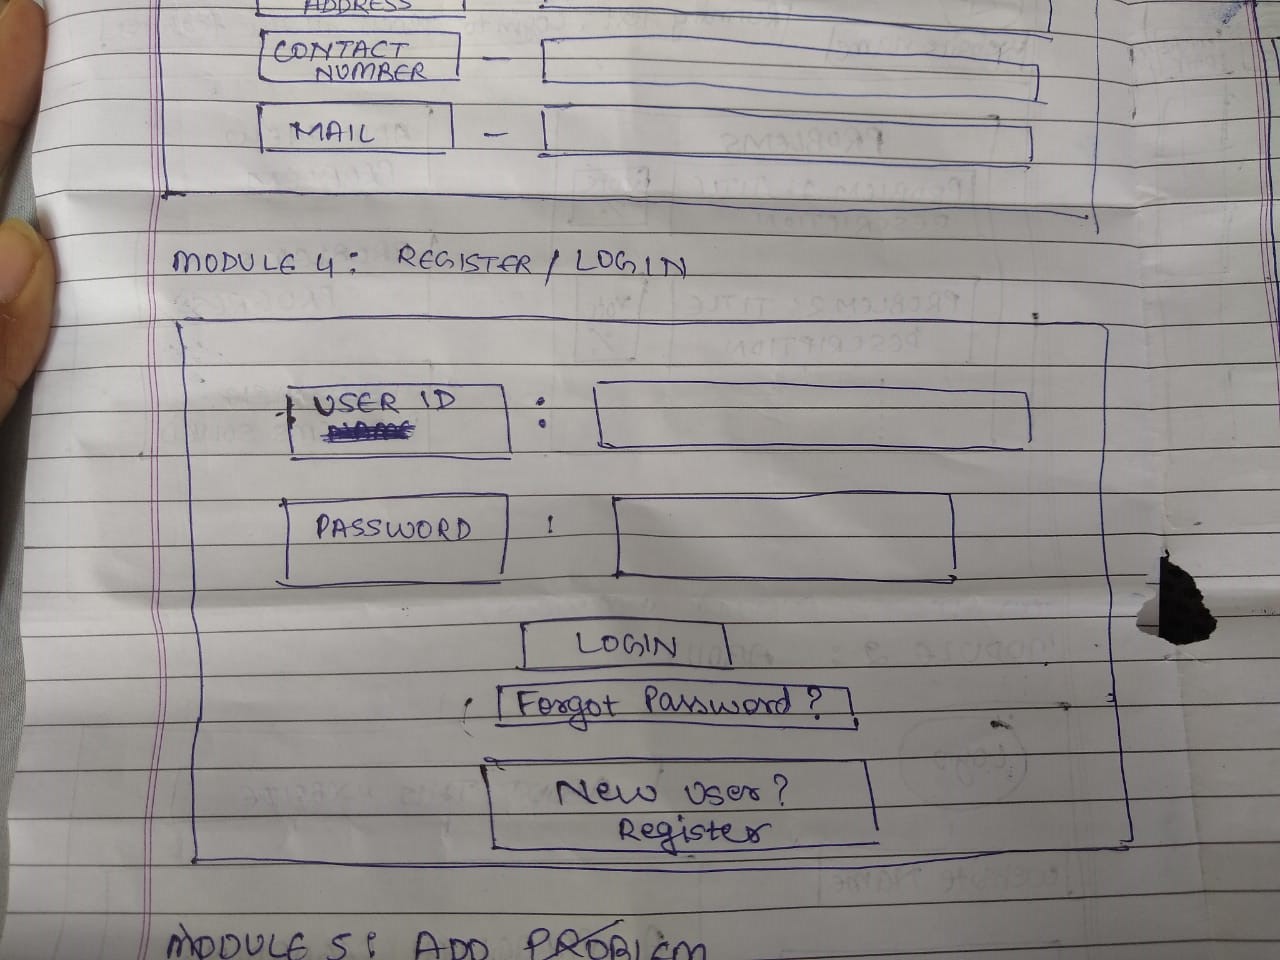 ADDRESS
CONTACT
NUMBER -
MAIL -
MODULE 4: REGISTER / LOGIN
USER ID :
PASSWORD :
LOGIN
Forgot Password?
New User?
Register
MODULE 5: ADD PROBLEM